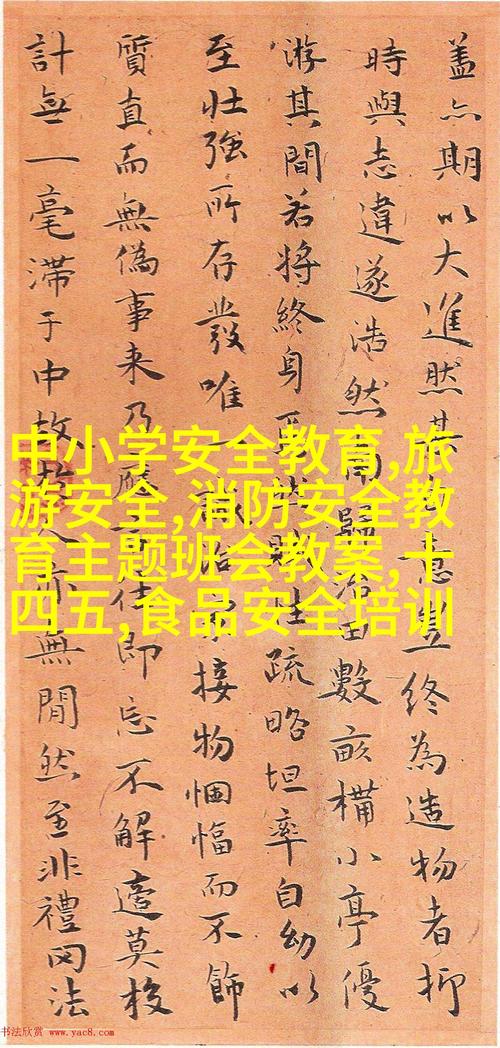 蓋亦期以大進然其意豈終為造物者抑
時與志違遂浩然歸田數畝構小亭優
游其間若將終身焉性疏略坦率自幼以
至壯強所存發唯一接物悃愊而不飾
質直而無偽事來乃應即忘不解莫校
計無一毫滯于中故人亦無閒然至非禮罔法
中小学安全教育,旅
游安全,消防安全教
育主题班会教案,十
四五,食品安全培训
书法欣赏 www.yac8.com